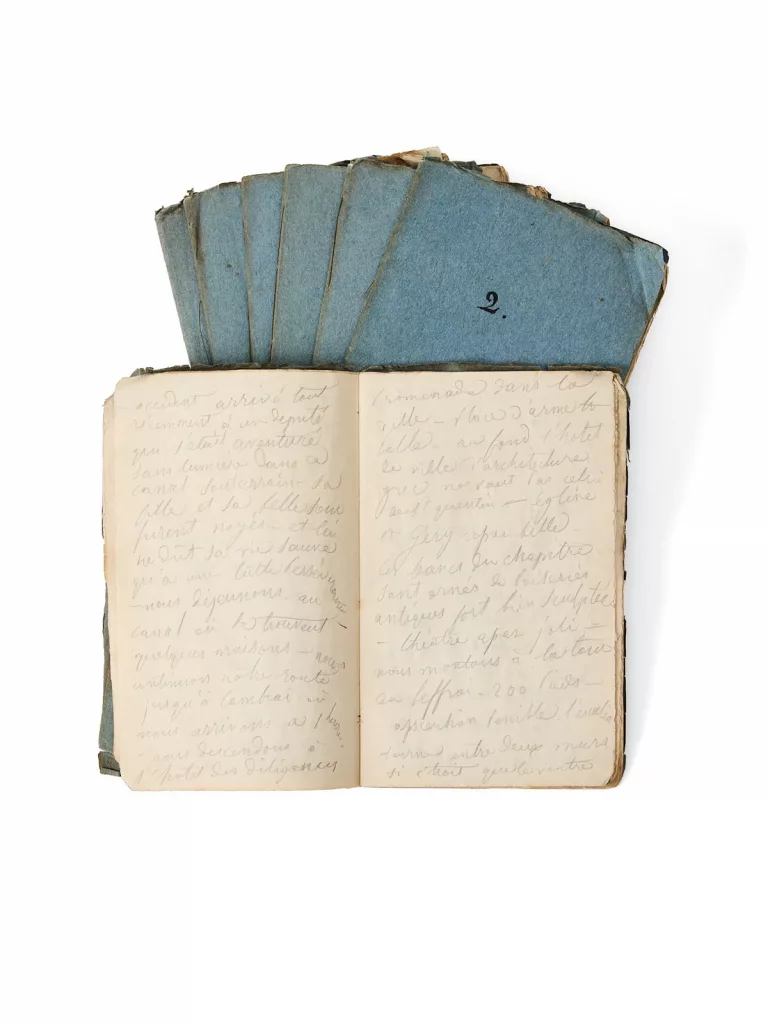 2.
accident arrivé tout
récemment à un député
qui s'était aventuré
sans lumière dans ce
canal souterrain. sa
fille et sa belle soeur
furent noyés - et lui
ne dut sa vie sauve
qu'à une
- nous déjeunons au
canal où se trouvent
quelques maisons - nous
continuons notre route
jusqu'à Cambrai où
nous arrivons à 1 heure
- nous descendons à
l'hotel des diligences
Promenade dans la
ville - place d'armes
belle. au fond l'hotel
de ville d'architecture
grec ne vaut pas celui
de St quentin - église
St Géry assez belle -
les bancs du chapitre
sont ornés de boiseries
antiques fort bien sculptées
- théâtre assez joli -
nous montons à la tour
du beffroi - 200 pieds -
ascension pénible l'escalier
tourne entre deux murs
si étroit que le ventre